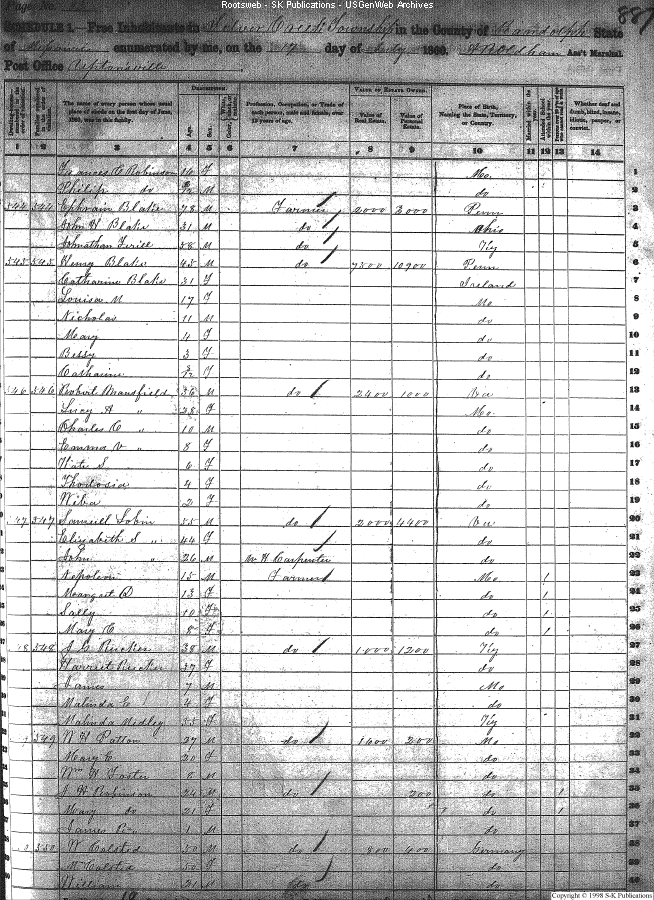 Rootsweb - SK Publications - USGenWeb Archives
Page No.
887
SCHEDULE 1.—Free Inhabitants in Silver Creek Township in the County of Randolph State
of Missouri enumerated by me, on the 17 day of July 1860. Oldham Ass't Marshal
Post Office
The name of every person whose usual place of abode on the first day of June, 1860, was in this family.
DESCRIPTION.
Age
Sex
Profession, Occupation, or Trade of each person, male and female, over 15 years of age.
VALUE OF ESTATE OWNED.
Value of Real Estate.
Value of Personal Estate.
Place of Birth, Naming the State, Territory, or Country.
Whether deaf and dumb, blind, insane, idiotic, pauper, or convict.
1 2 3 4 5 6 7 8 9 10 11 12 13 14
Frances C Robinson 14 F Mo. 1
Philip do M do 2
544 544 Ephraim Blake 78 M Farmer 2000 3000 Penn 3
John H Blake 31 M do Ohio 4
Johnathan 58 M do Ky 5
545 545 Henry Blake 45 M do 7500 10900 Penn 6
Catharine Blake 31 F Ireland 7
Louisa M 17 F Mo 8
Nicholas 11 M do 9
Mary 4 F do 10
Bessy 3 F do 11
Catharine F do 12
546 546 Robert Mansfield 36 M do 2400 1000 Va 13
Lucy A " 28 F Mo. 14
Charles C " 10 M do 15
Emma V " 8 F do 16
Kate S. 6 F do 17
Thodosia 4 F do 18
2 F do 19
547 Samuel 55 M do 2000 4400 Va 20
Elizabeth S " 44 F do 21
John " 26 M Carpenter do 22
Nepoleon 15 M Farmer Mo 1 23
Margret D 13 F do 1 24
Sally 10 F do 1 25
Mary C 8 F do 1 26
548 S G Rucker 38 M do 1000 1200 Ky 27
Harriet Rucker 37 F do 28
James 7 M Mo 29
Malinda E 4 F do 30
Malinda Medley F Ky 31
549 W H Patton 27 M do 1600 200 Mo 32
Mary C 20 F do 33
Wm H Foster 8 M do 34
Robinson 24 M do 200 do 1 35
Mary do 21 F do 1 36
James 1 M do 37
550 W Halsted 50 M do 800 400 Germany 38
M Halsted 50 F do
William 21 M do do 40
Copyright © 1998 S-K Publications